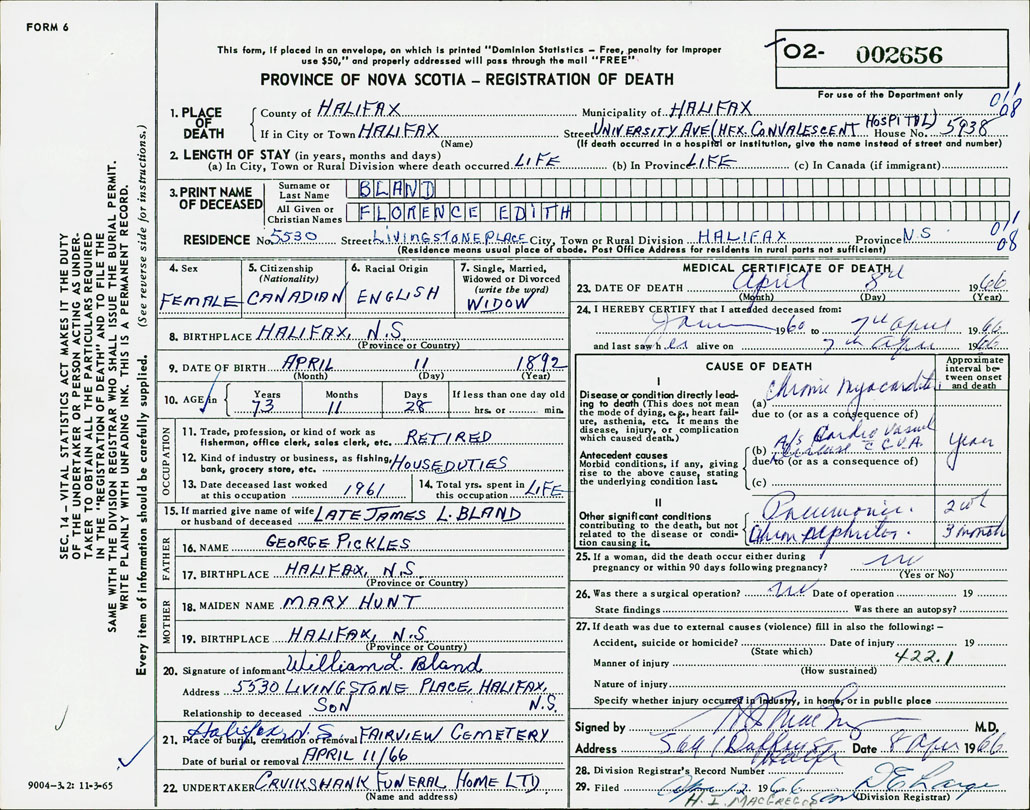 FORM 6
This form, if placed in an envelope, on which is printed "Dominion Statistics – Free, penalty for improper
use $50," and properly addressed will pass through the mail "FREE"
PROVINCE OF NOVA SCOTIA – REGISTRATION OF DEATH
02- 002656
For use of the Department only
1. PLACE OF DEATH
County of HALIFAX Municipality of HALIFAX 01/08
If in City or Town HALIFAX Street UNIVERSITY AVE (HFX. CONVALESCENT HOSPITAL) House No. 5938
(Name) (If death occurred in a hospital or institution, give the name instead of street and number)
2. LENGTH OF STAY (in years, months and days)
(a) In City, Town or Rural Division where death occurred LIFE (b) In Province LIFE (c) In Canada (if immigrant)
3. PRINT NAME OF DECEASED
Surname or Last Name BLAND
All Given or Christian Names FLORENCE EDITH
RESIDENCE No. 5530 Street LIVINGSTONE PLACE City, Town or Rural Division HALIFAX Province N.S 01/08
(Residence means usual place of abode. Post Office Address for residents in rural parts not sufficient)
4. Sex FEMALE
5. Citizenship (Nationality) CANADIAN
6. Racial Origin ENGLISH
7. Single, Married, Widowed or Divorced (write the word) WIDOW
8. BIRTHPLACE HALIFAX, N.S.
(Province or Country)
9. DATE OF BIRTH APRIL 11 1892
(Month) (Day) (Year)
10. AGE in Years 73 Months 11 Days 28 If less than one day old hrs. or min.
OCCUPATION
11. Trade, profession, or kind of work as
fisherman, office clerk, sales clerk, etc. RETIRED
12. Kind of industry or business, as fishing,
bank, grocery store, etc. HOUSE DUTIES
13. Date deceased last worked
at this occupation 1961
14. Total yrs. spent in
this occupation LIFE
15. If married give name of wife
or husband of deceased LATE JAMES L. BLAND
FATHER
16. NAME GEORGE PICKLES
17. BIRTHPLACE HALIFAX, N.S.
(Province or Country)
MOTHER
18. MAIDEN NAME MARY HUNT
19. BIRTHPLACE HALIFAX, N.S
(Province or Country)
20. Signature of informant William L. Bland
Address 5530 LIVINGSTONE PLACE, HALIFAX, N.S.
Relationship to deceased SON
21. Place of burial, cremation or removal Halifax, N.S. FAIRVIEW CEMETERY
Date of burial or removal APRIL 11/66
22. UNDERTAKER CRUIKSHANK FUNERAL HOME LTD
(Name and address)
MEDICAL CERTIFICATE OF DEATH
23. DATE OF DEATH April 8th 1966
(Month) (Day) (Year)
24. I HEREBY CERTIFY that I attended deceased from:
1960 to 7th April 1966
and last saw h er alive on 7th April 1966
CAUSE OF DEATH
Approximate interval between onset and death
I
Disease or condition directly leading to death (This does not mean
the mode of dying, e.g., heart failure, asthenia, etc. It means the
disease, injury, or complication
which caused death.)
(a) Chronic Myocarditis
due to (or as a consequence of)
Antecedent causes
Morbid conditions, if any, giving
rise to the above cause, stating
the underlying condition last.
(b) A/S Cardio Vascul Disease C C.V.A. years
due to (or as a consequence of)
(c)
II
Other significant conditions
contributing to the death, but not
related to the disease or condition causing it.
Pneumonia. 2 wk
Chron nephritis. 3 months
25. If a woman, did the death occur either during
pregnancy or within 90 days following pregnancy? no
(Yes or No)
26. Was there a surgical operation? no Date of operation 19
State findings Was there an autopsy?
27. If death was due to external causes (violence) fill in also the following:–
Accident, suicide or homicide? Date of injury 19
(State which)
422.1
Manner of injury
(How sustained)
Nature of injury
Specify whether injury occurred in industry, in home, or in public place
Signed by M.D.
Address 5691 Date 8 Apr 1966
28. Division Registrar's Record Number
29. Filed April 12 1966
H. I. MACGREGOR
Division Registrar
SEC. 14 – VITAL STATISTICS ACT MAKES IT THE DUTY
OF THE UNDERTAKER OR PERSON ACTING AS UNDERTAKER TO OBTAIN ALL THE PARTICULARS REQUIRED
IN THE "REGISTRATION OF DEATH" AND TO FILE THE
SAME WITH THE DIVISION REGISTRAR WHO SHALL ISSUE THE BURIAL PERMIT.
WRITE PLAINLY WITH UNFADING INK. THIS IS A PERMANENT RECORD.
Every item of information should be carefully supplied. (See reverse side for instructions.)
9004-3.2: 11-3-65